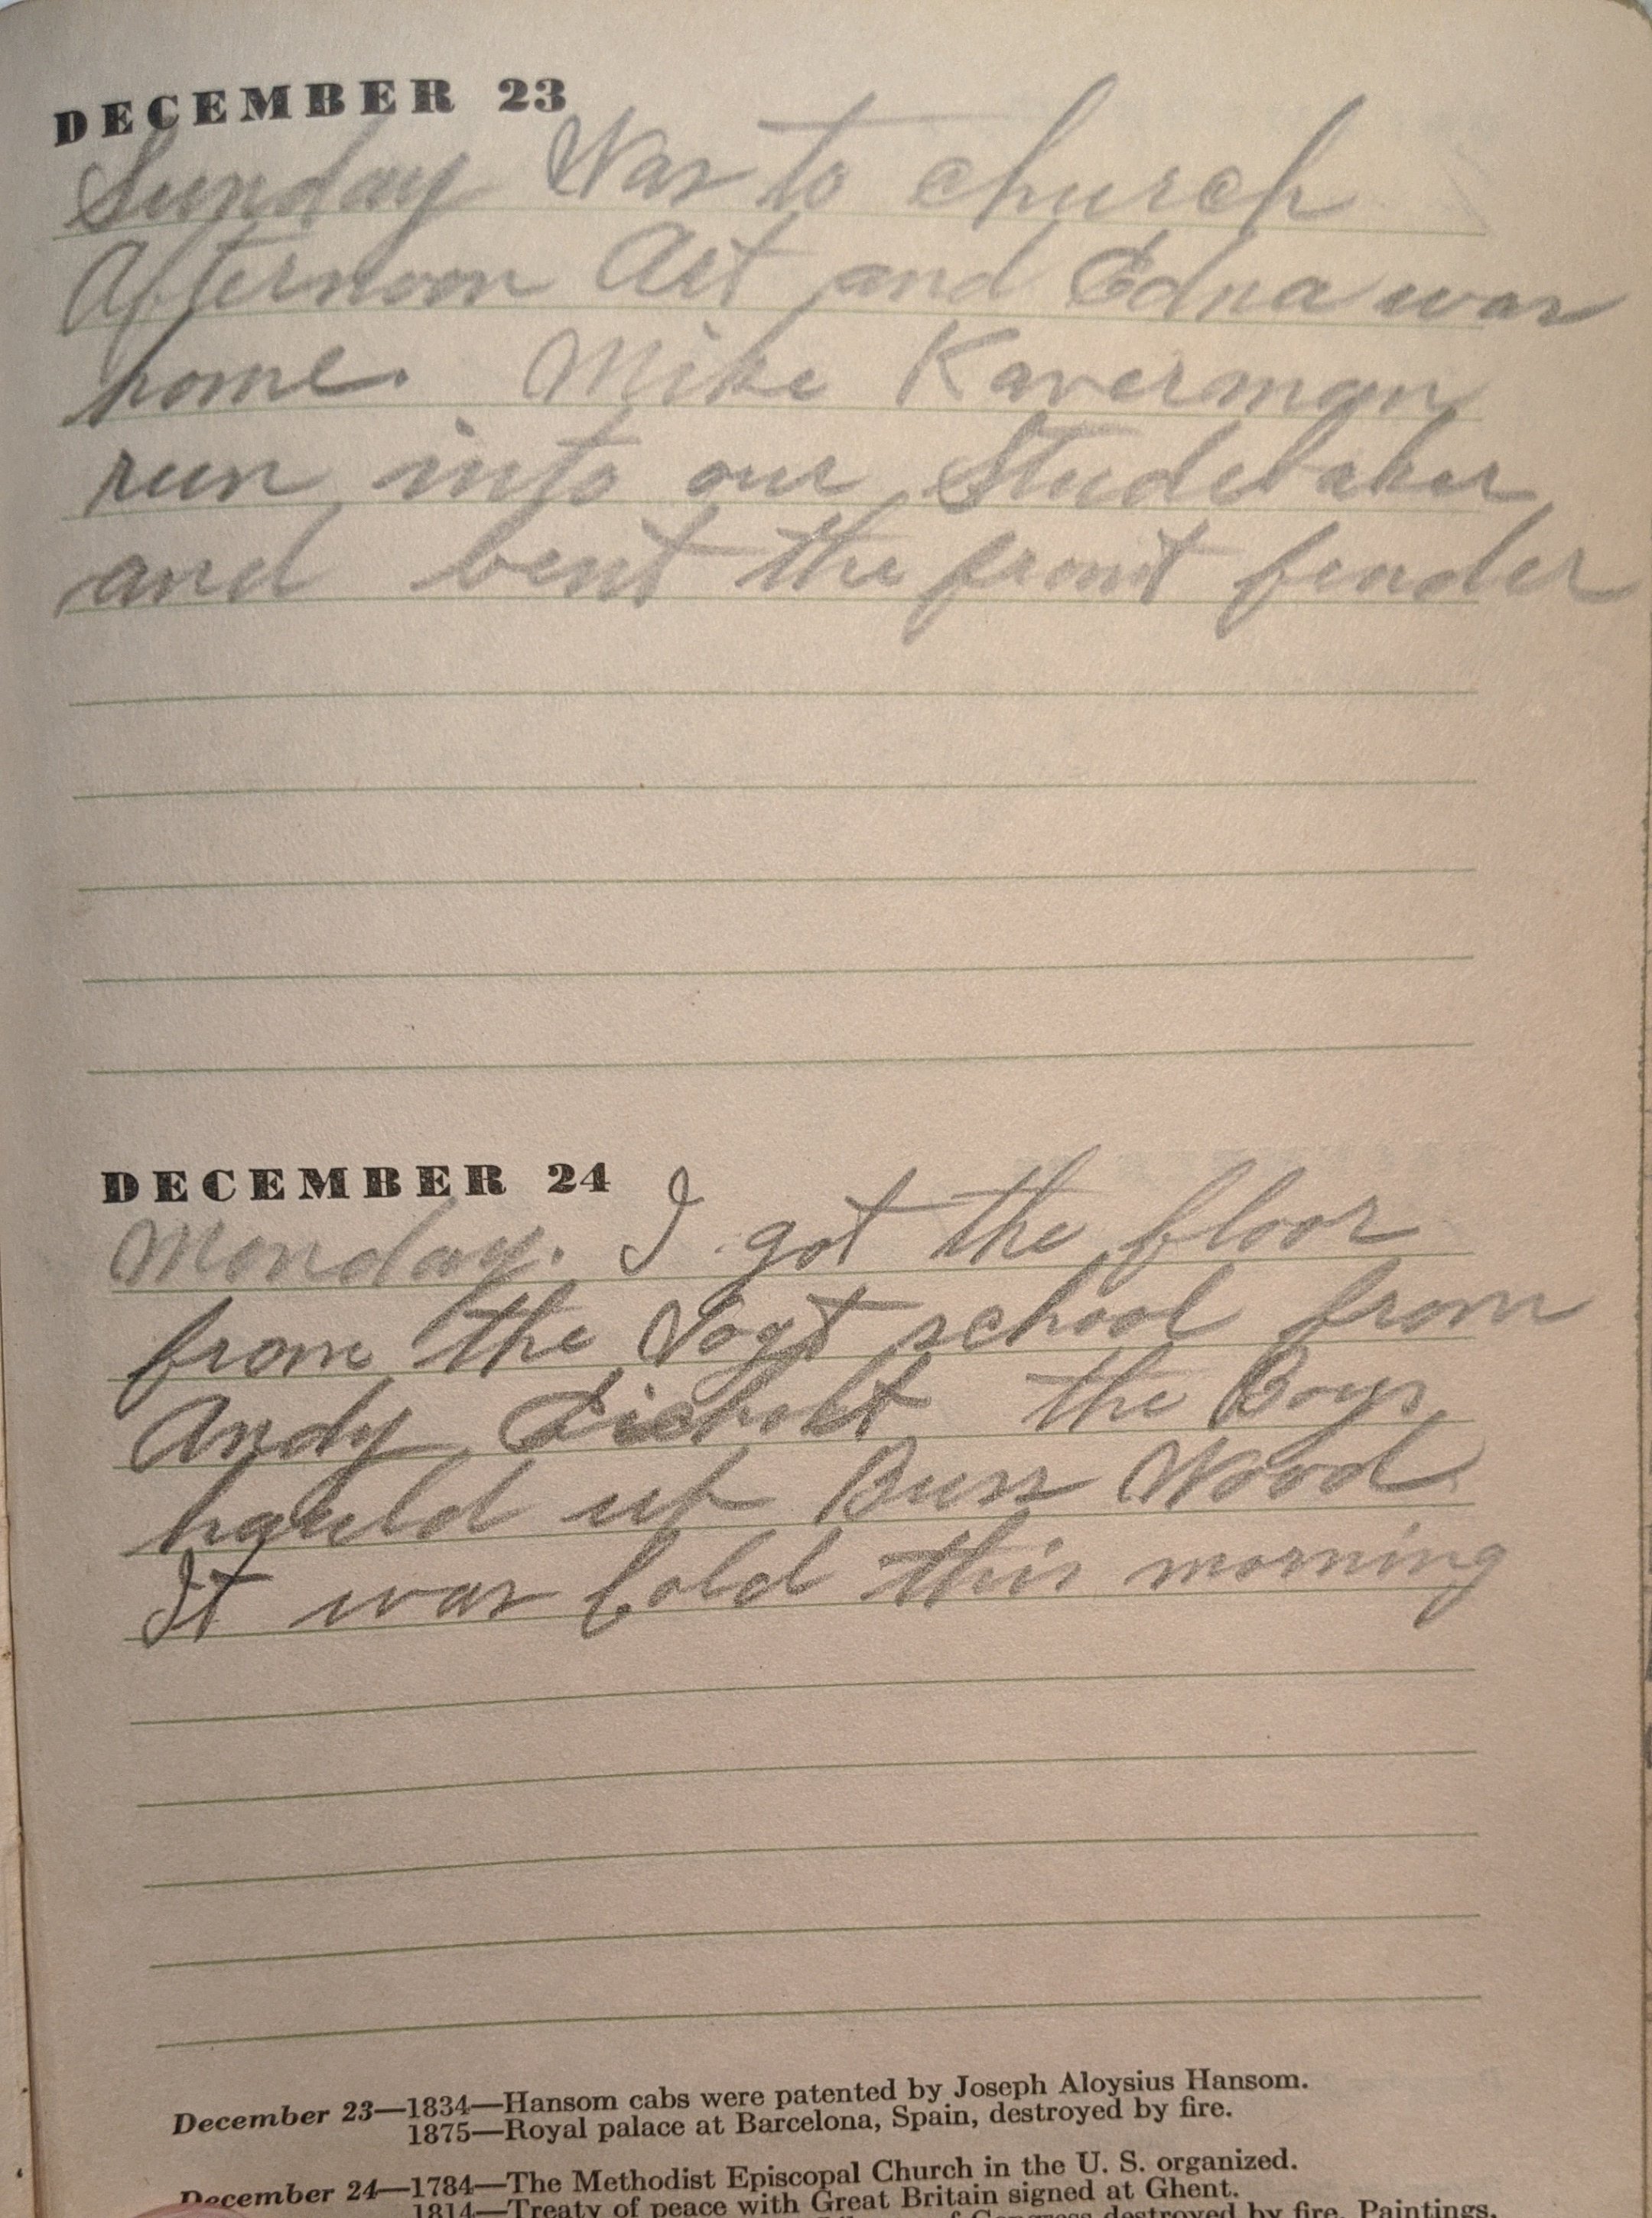 DECEMBER 23
Sunday Was to church
Afternoon Art and Edna was
home. Mike Kaverman
run into our Studebaker
and bent the front fender
DECEMBER 24
Monday. I got the floor
from the Vogt school from
Andy the Boys
hauld up Buss Wood
It was Cold this morning
December 23—1834—Hansom cabs were patented by Joseph Aloysius Hansom.
1875—Royal palace at Barcelona, Spain, destroyed by fire.
December 24—1784—The Methodist Episcopal Church in the U. S. organized.
1814—Treaty of peace with Great Britain signed at Ghent.
of Congress destroyed by fire. Paintings,